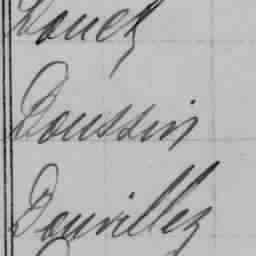 Douet
Doussin
Douvillez